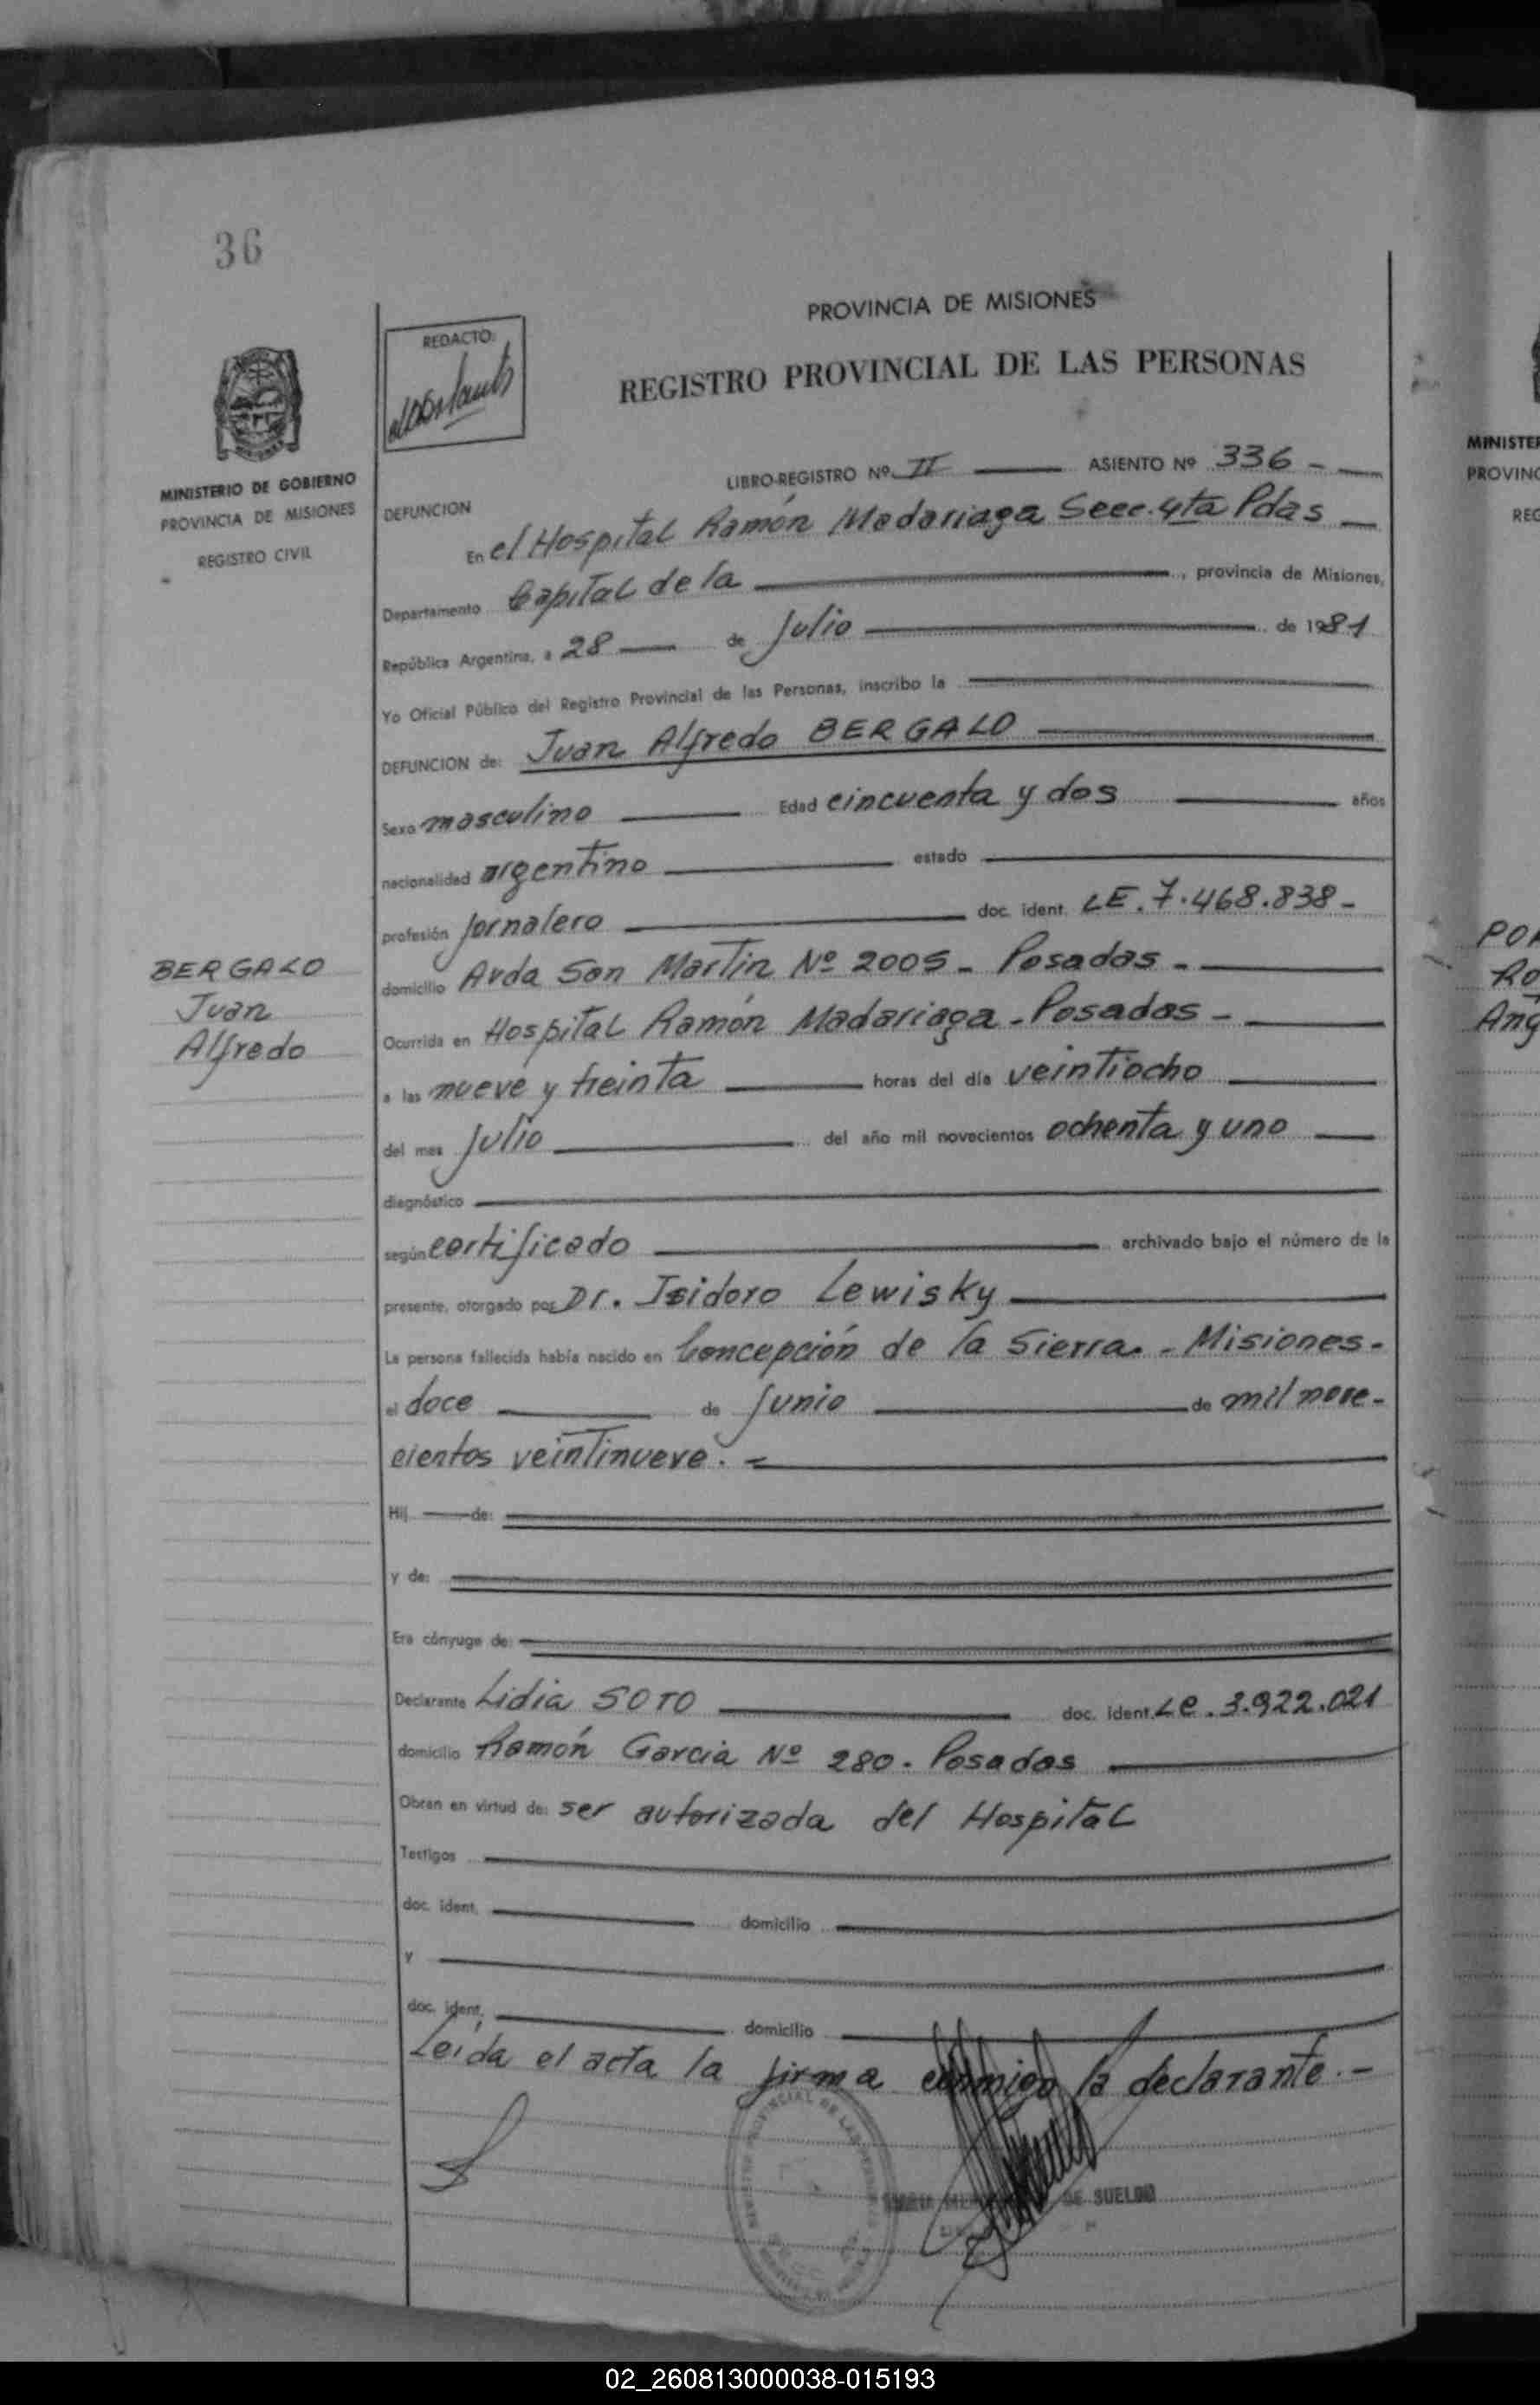 36
PROVINCIA DE MISIONES
REDACTO:
REGISTRO PROVINCIAL DE LAS PERSONAS
MINISTERIO DE GOBIERNO
PROVINCIA DE MISIONES
REGISTRO CIVIL
LIBRO-REGISTRO Nº II ASIENTO Nº 336 -
DEFUNCION
En el Hospital Ramón Madariaga Secc. 4ta Pdas
Departamento Capital de la , provincia de Misiones,
República Argentina, a 28 de Julio de 1981
Yo Oficial Público del Registro Provincial de las Personas, inscribo la
DEFUNCION de: Juan Alfredo BERGALO
Sexo masculino Edad cincuenta y dos años
nacionalidad argentino estado
profesión Jornalero doc. ident. LE. 7.468.838-
BERGALO
Juan
Alfredo
domicilio Avda San Martin Nº 2005 - Posadas -
Ocurrida en Hospital Ramón Madariaga - Posadas -
a las nueve y treinta horas del día veintiocho
del mes Julio del año mil novecientos ochenta y uno
diagnóstico
según certificado archivado bajo el número de la
presente, otorgado por Dr. Isidoro Lewisky
La persona fallecida había nacido en Concepción de la Sierra. - Misiones-
el doce de Junio de mil nove-
cientos veintinueve. -
Hij de:
y de:
Era cónyuge de:
Declarante Lidia SOTO doc. ident. Le. 3.922.021
domicilio Ramón Garcia Nº 280. Posadas
Obran en virtud de: ser autorizada del Hospital
Testigos
doc. ident. domicilio
y
doc. ident. domicilio
Leída el acta la firma conmigo la declarante. -
DE SUELDO
MINISTE
PROVINC
REG
02_260813000038-015193